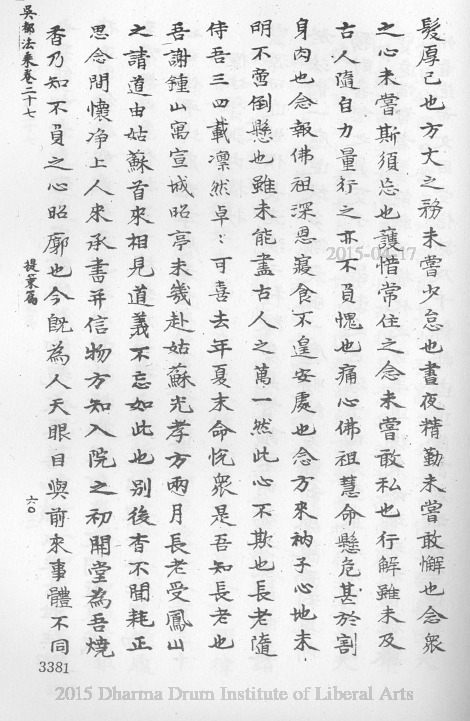 髮厚己也方丈之務未嘗少怠也晝夜精勤未嘗敢懈也念衆
之心未嘗斯須忘也護惜常住之念未嘗敢私也行解雖未及
古人隨自力量行之亦不負愧也痛心佛祖慧命懸危甚於割
身肉也念報佛祖深恩寢食不遑安處也念方來衲子心地未
明不啻倒懸也雖未能盡古人之萬一然此心不欺也長老隨
侍吾三四載凛然卓：可喜去年夏末命悦衆是吾知長老也
吾謝鍾山寓宣城昭亭未幾赴姑蘇光孝方兩月長老受鳳山
之請道由姑蘇首來相見道義不忘如此也别後杳不聞耗正
思念間懷净上人來承書并信物方知入院之初開堂為吾燒
香乃知不負之心昭廓也今既為人天眼目與前來事體不同
吳都法乘卷二十七
提業篇
六〇
3381
2015-04-17
2015 Dharma Drum Institute of Liberal Arts